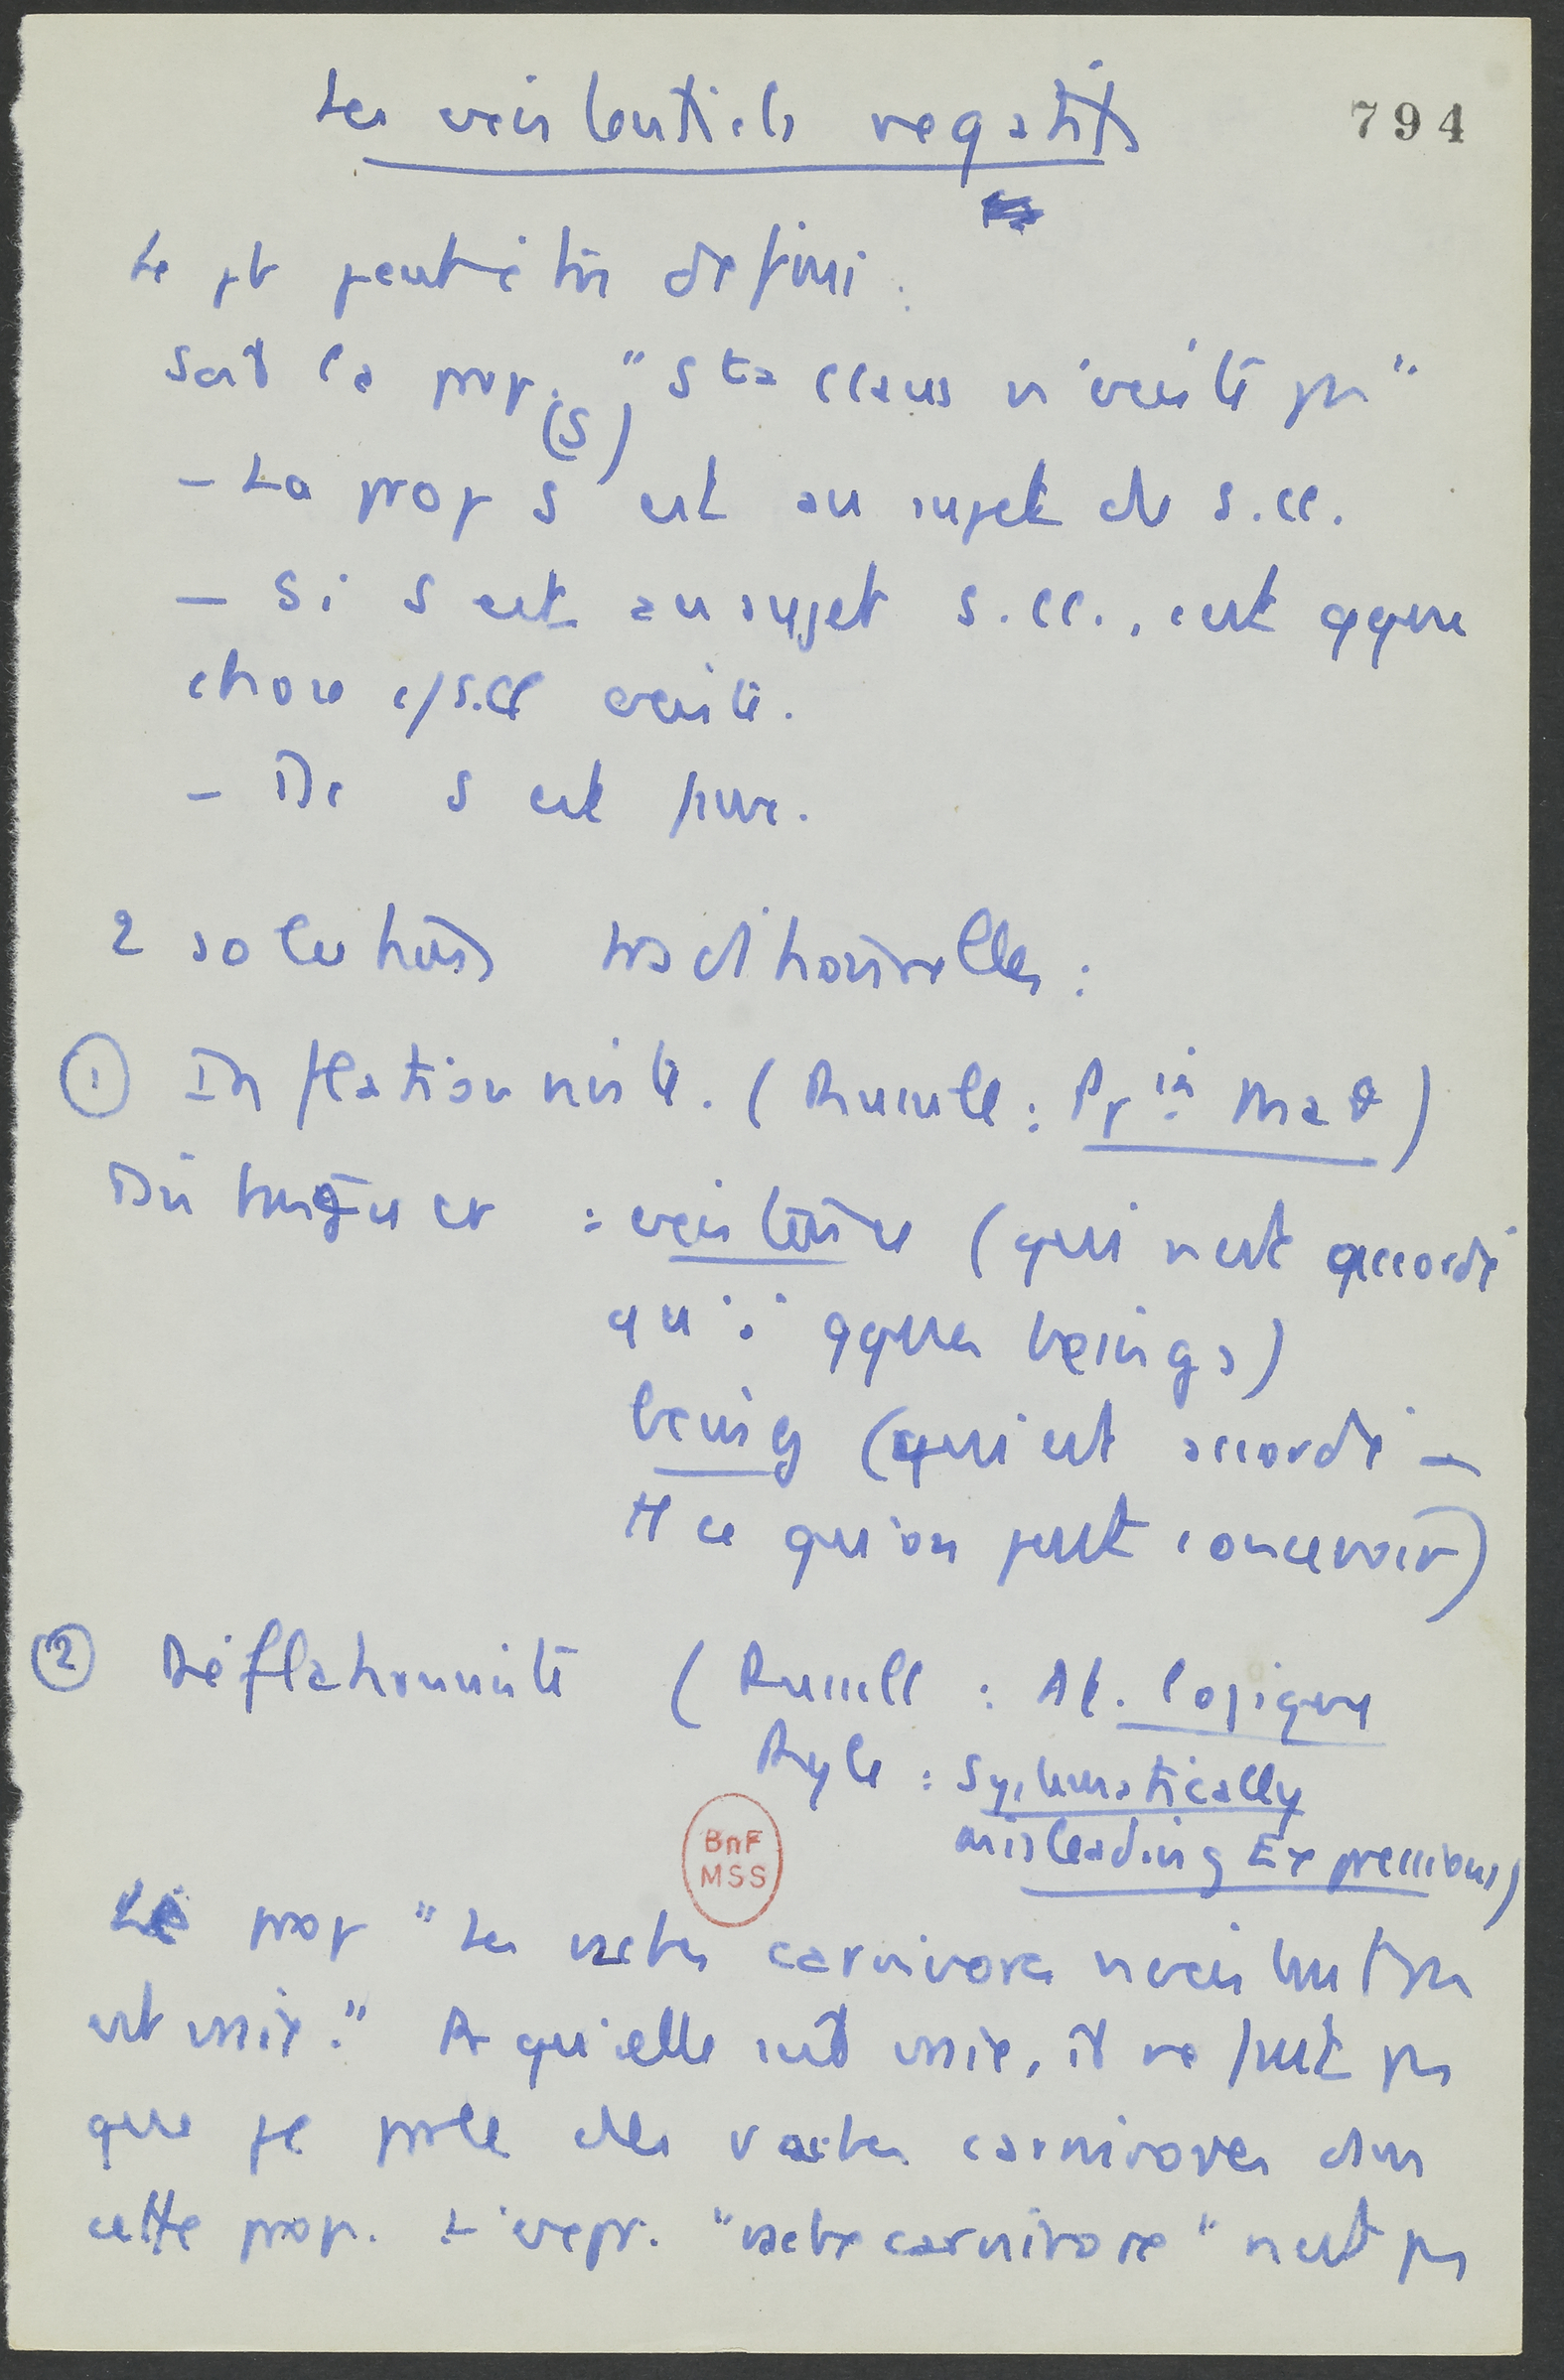 Les existentiels négatifs
794
Le pb peut être défini :
Soit la prop. "Sta Claus n'existe pas"
- La prop S (S) est au sujet de S.Cl.
- Si S est au sujet S.Cl., c'est qque
chose c/ S.Cl existe.
- Dc S est fausse.
2 solutions traditionnelles :
① Inflationniste. (Russell : Pr ia Mat)
Distinguer : existence (qui n'est accordé
qu'à qques beings)
being (qui est accordé à
tt ce qu'on peut concevoir)
② Déflationniste (Russell : At. logique
Ryle : Systematically
misleading Expressions)
BnF
MSS
La prop "Les vaches carnivores n'existent pas
est vraie." Pr qu'elle soit vraie, il ne faut pas
que je parle des vaches carnivores dans
cette prop. L'expr. "vache carnivore" n'est pas